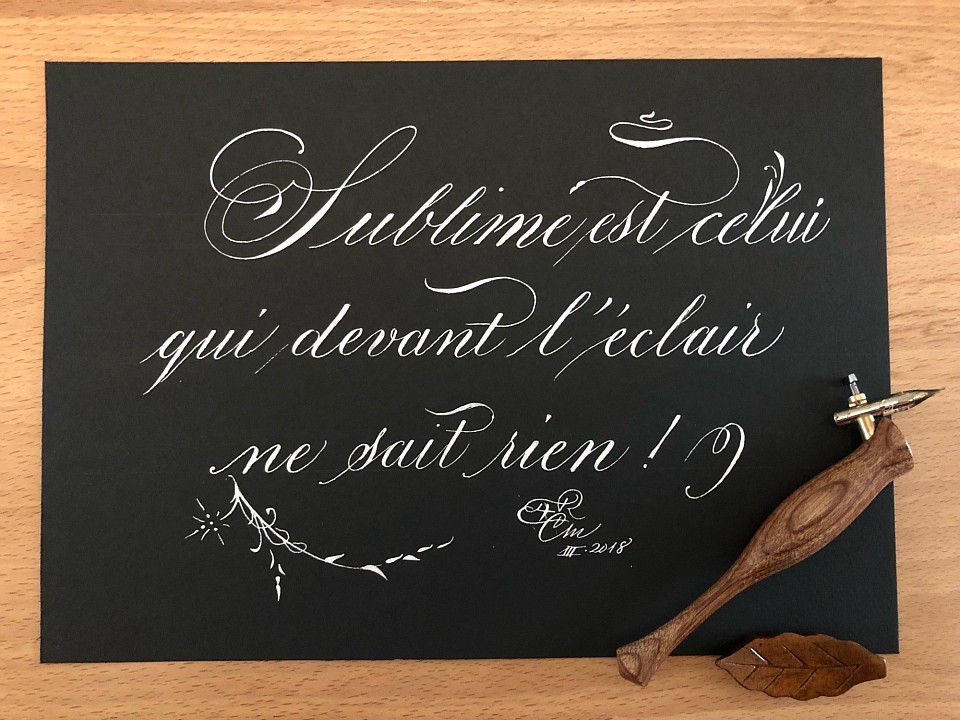 Sublime est celui
qui devant l'éclair
ne sait rien !
III · 2018